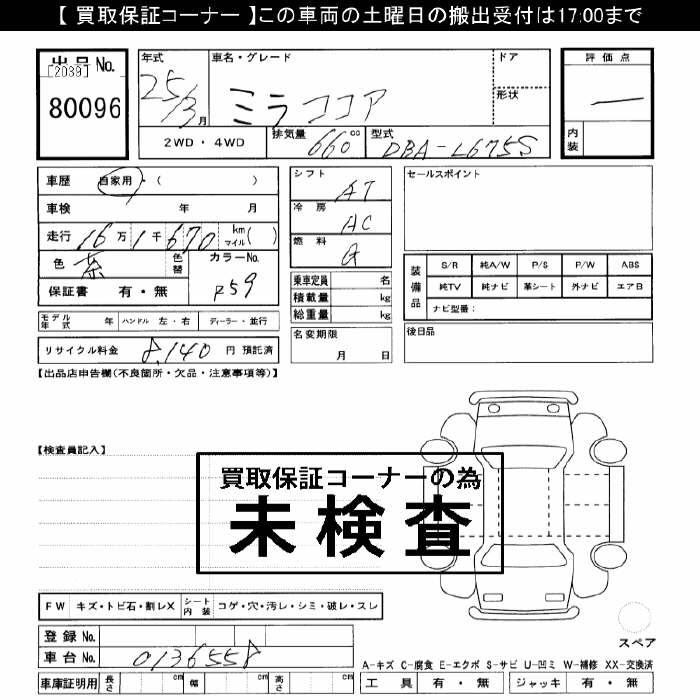 【 買取保証コーナー 】この車両の土曜日の搬出受付は17:00まで
出品 No.
[2039]
80096
年式
25/3 月
車名・グレード
ミラココア
ドア
形状
2WD ・ 4WD
排気量 660 cc
型式 DBA-L675S
評価点
—
内装
車歴 自家用・( )
車検 年 月
走行 16万1千670 km マイル( )
色 茶 色替
カラーNo. P59
保証書 有・無
シフト AT
冷房 AC
燃料 G
乗車定員 名
積載量 kg
総重量 kg
セールスポイント
装備品
S/R 純A/W P/S P/W ABS
純TV 純ナビ 革シート 外ナビ エアB
ナビ型番:
モデル年式 年 ハンドル 左・右 ディーラー・並行
リサイクル料金 8,140 円 預託済
名変期限
月 日
後日品
【出品店申告欄(不良箇所・欠品・注意事項等)】
【検査員記入】
買取保証コーナーの為
未検査
FW キズ・トビ石・割レX シート内装 コゲ・穴・汚レ・シミ・破レ・スレ
スペア
登録 No.
車台 No. 0136558
A-キズ C-腐食 E-エクボ S-サビ U-凹ミ W-補修 XX-交換済
車庫証明用 長さ cm 幅 cm 高さ cm
工具 有・無 ジャッキ 有・無